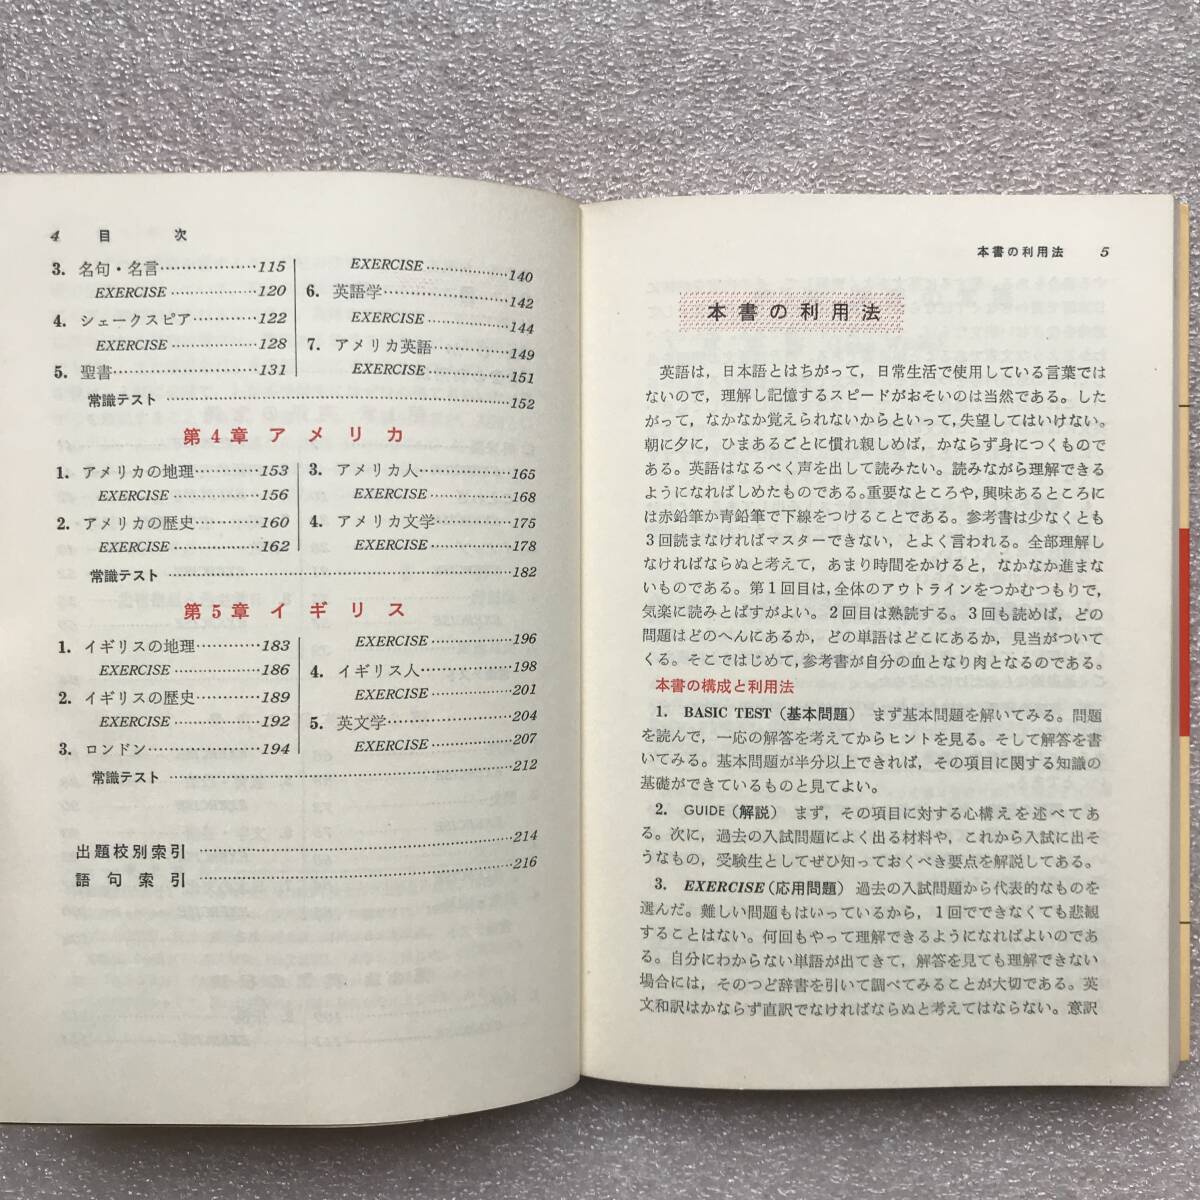 4 目 次
3. 名句・名言………………115
EXERCISE ……………120
4. シェークスピア…………122
EXERCISE ……………128
5. 聖書………………………131
EXERCISE ……………140
6. 英語学……………………142
EXERCISE ……………144
7. アメリカ英語……………149
EXERCISE ……………151
常識テスト ……………………………………………………152
第4章 アメリカ
1. アメリカの地理…………153
EXERCISE ……………156
2. アメリカの歴史…………160
EXERCISE ……………162
3. アメリカ人………………165
EXERCISE ……………168
4. アメリカ文学……………175
EXERCISE ……………178
常識テスト ……………………………………………………182
第5章 イギリス
1. イギリスの地理…………183
EXERCISE ……………186
2. イギリスの歴史…………189
EXERCISE ……………192
3. ロンドン…………………194
EXERCISE ……………196
4. イギリス人………………198
EXERCISE ……………201
5. 英文学……………………204
EXERCISE ……………207
常識テスト ……………………………………………………212
出題校別索引 …………………………………………………214
語句索引 ………………………………………………………216
本書の利用法 5
本書の利用法
英語は，日本語とはちがって，日常生活で使用している言葉では
ないので，理解し記憶するスピードがおそいのは当然である。した
がって，なかなか覚えられないからといって，失望してはいけない。
朝に夕に，ひまあるごとに慣れ親しめば，かならず身につくもので
ある。英語はなるべく声を出して読みたい。読みながら理解できる
ようになればしめたものである。重要なところや，興味あるところに
は赤鉛筆か青鉛筆で下線をつけることである。参考書は少なくとも
3回読まなければマスターできない，とよく言われる。全部理解し
なければならぬと考えて，あまり時間をかけると，なかなか進まな
いものである。第1回目は，全体のアウトラインをつかむつもりで，
気楽に読みとばすがよい。2回目は熟読する。3回も読めば，どの
問題はどのへんにあるか，どの単語はどこにあるか，見当がついて
くる。そこではじめて，参考書が自分の血となり肉となるのである。
本書の構成と利用法
1. BASIC TEST（基本問題） まず基本問題を解いてみる。問題
を読んで，一応の解答を考えてからヒントを見る。そして解答を書
いてみる。基本問題が半分以上できれば，その項目に関する知識の
基礎ができているものと見てよい。
2. GUIDE（解説） まず，その項目に対する心構えを述べてあ
る。次に，過去の入試問題によく出る材料や，これから入試に出そ
うなもの，受験生としてぜひ知っておくべき要点を解説してある。
3. EXERCISE（応用問題） 過去の入試問題から代表的なものを
選んだ。難しい問題もはいっているから，1回でできなくても悲観
することはない。何回もやって理解できるようになればよいのであ
る。自分にわからない単語が出てきて，解答を見ても理解できない
場合には，そのつど辞書を引いて調べてみることが大切である。英
文和訳はかならず直訳でなければならぬと考えてはならない。意訳